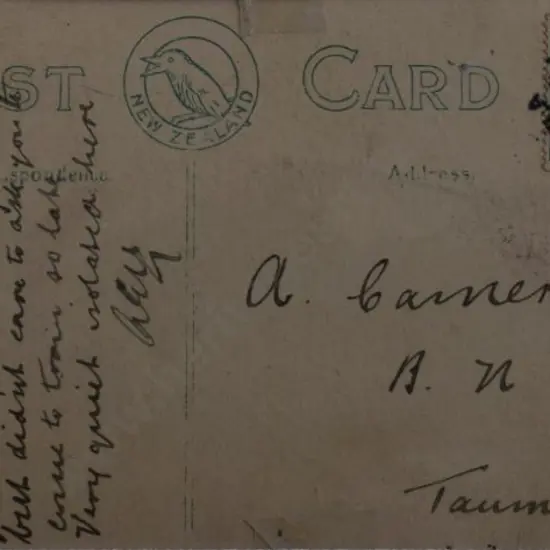 ST CARD
NEW ZEALAND
spondence
Address.
but didn't care to ask you to
come to train so late
Very quiet isolated here
A. Camer
B. N
Taum